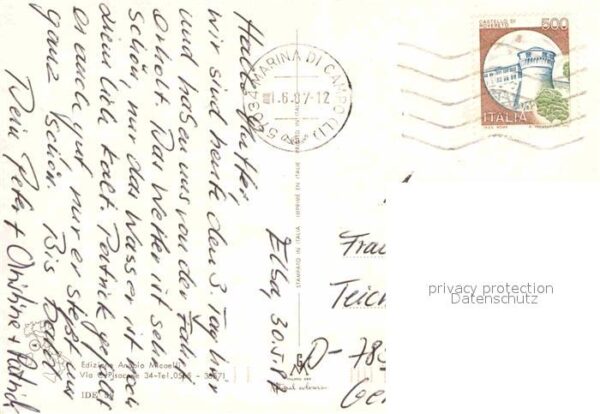 Elba, 30.5.87
Hallo Mutter,
wir sind heute den 3. Tag hier
und haben uns von der Fahrt
erholt. Das Wetter ist sehr
schön, nur das Wasser ist noch
ziemlich kalt. Patrick gefällt
es auch gut nur er steßt
ganz schön. Bis bald
Dein Peter + Christine + Patrick
57034 MARINA DI CAMPO (LI)
1.6.87-12
CASTELLO DI
ROVERETO
500
ITALIA
STAMPATO IN ITALIA IMPRIMÉ EN ITALIE PRINTED IN ITALY
Frau
Teich
D-783
privacy protection
Datenschutz
Edizione
Via Pisacane 34-Tel.